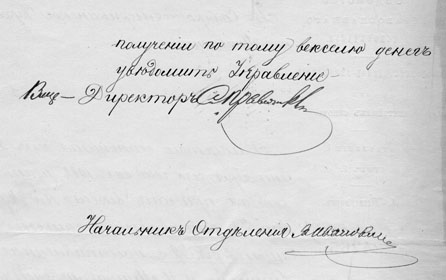 полученіи по тому векселю денегъ
увѣдомить Управленіе
Вице – Директоръ
Начальникъ Отдѣленія